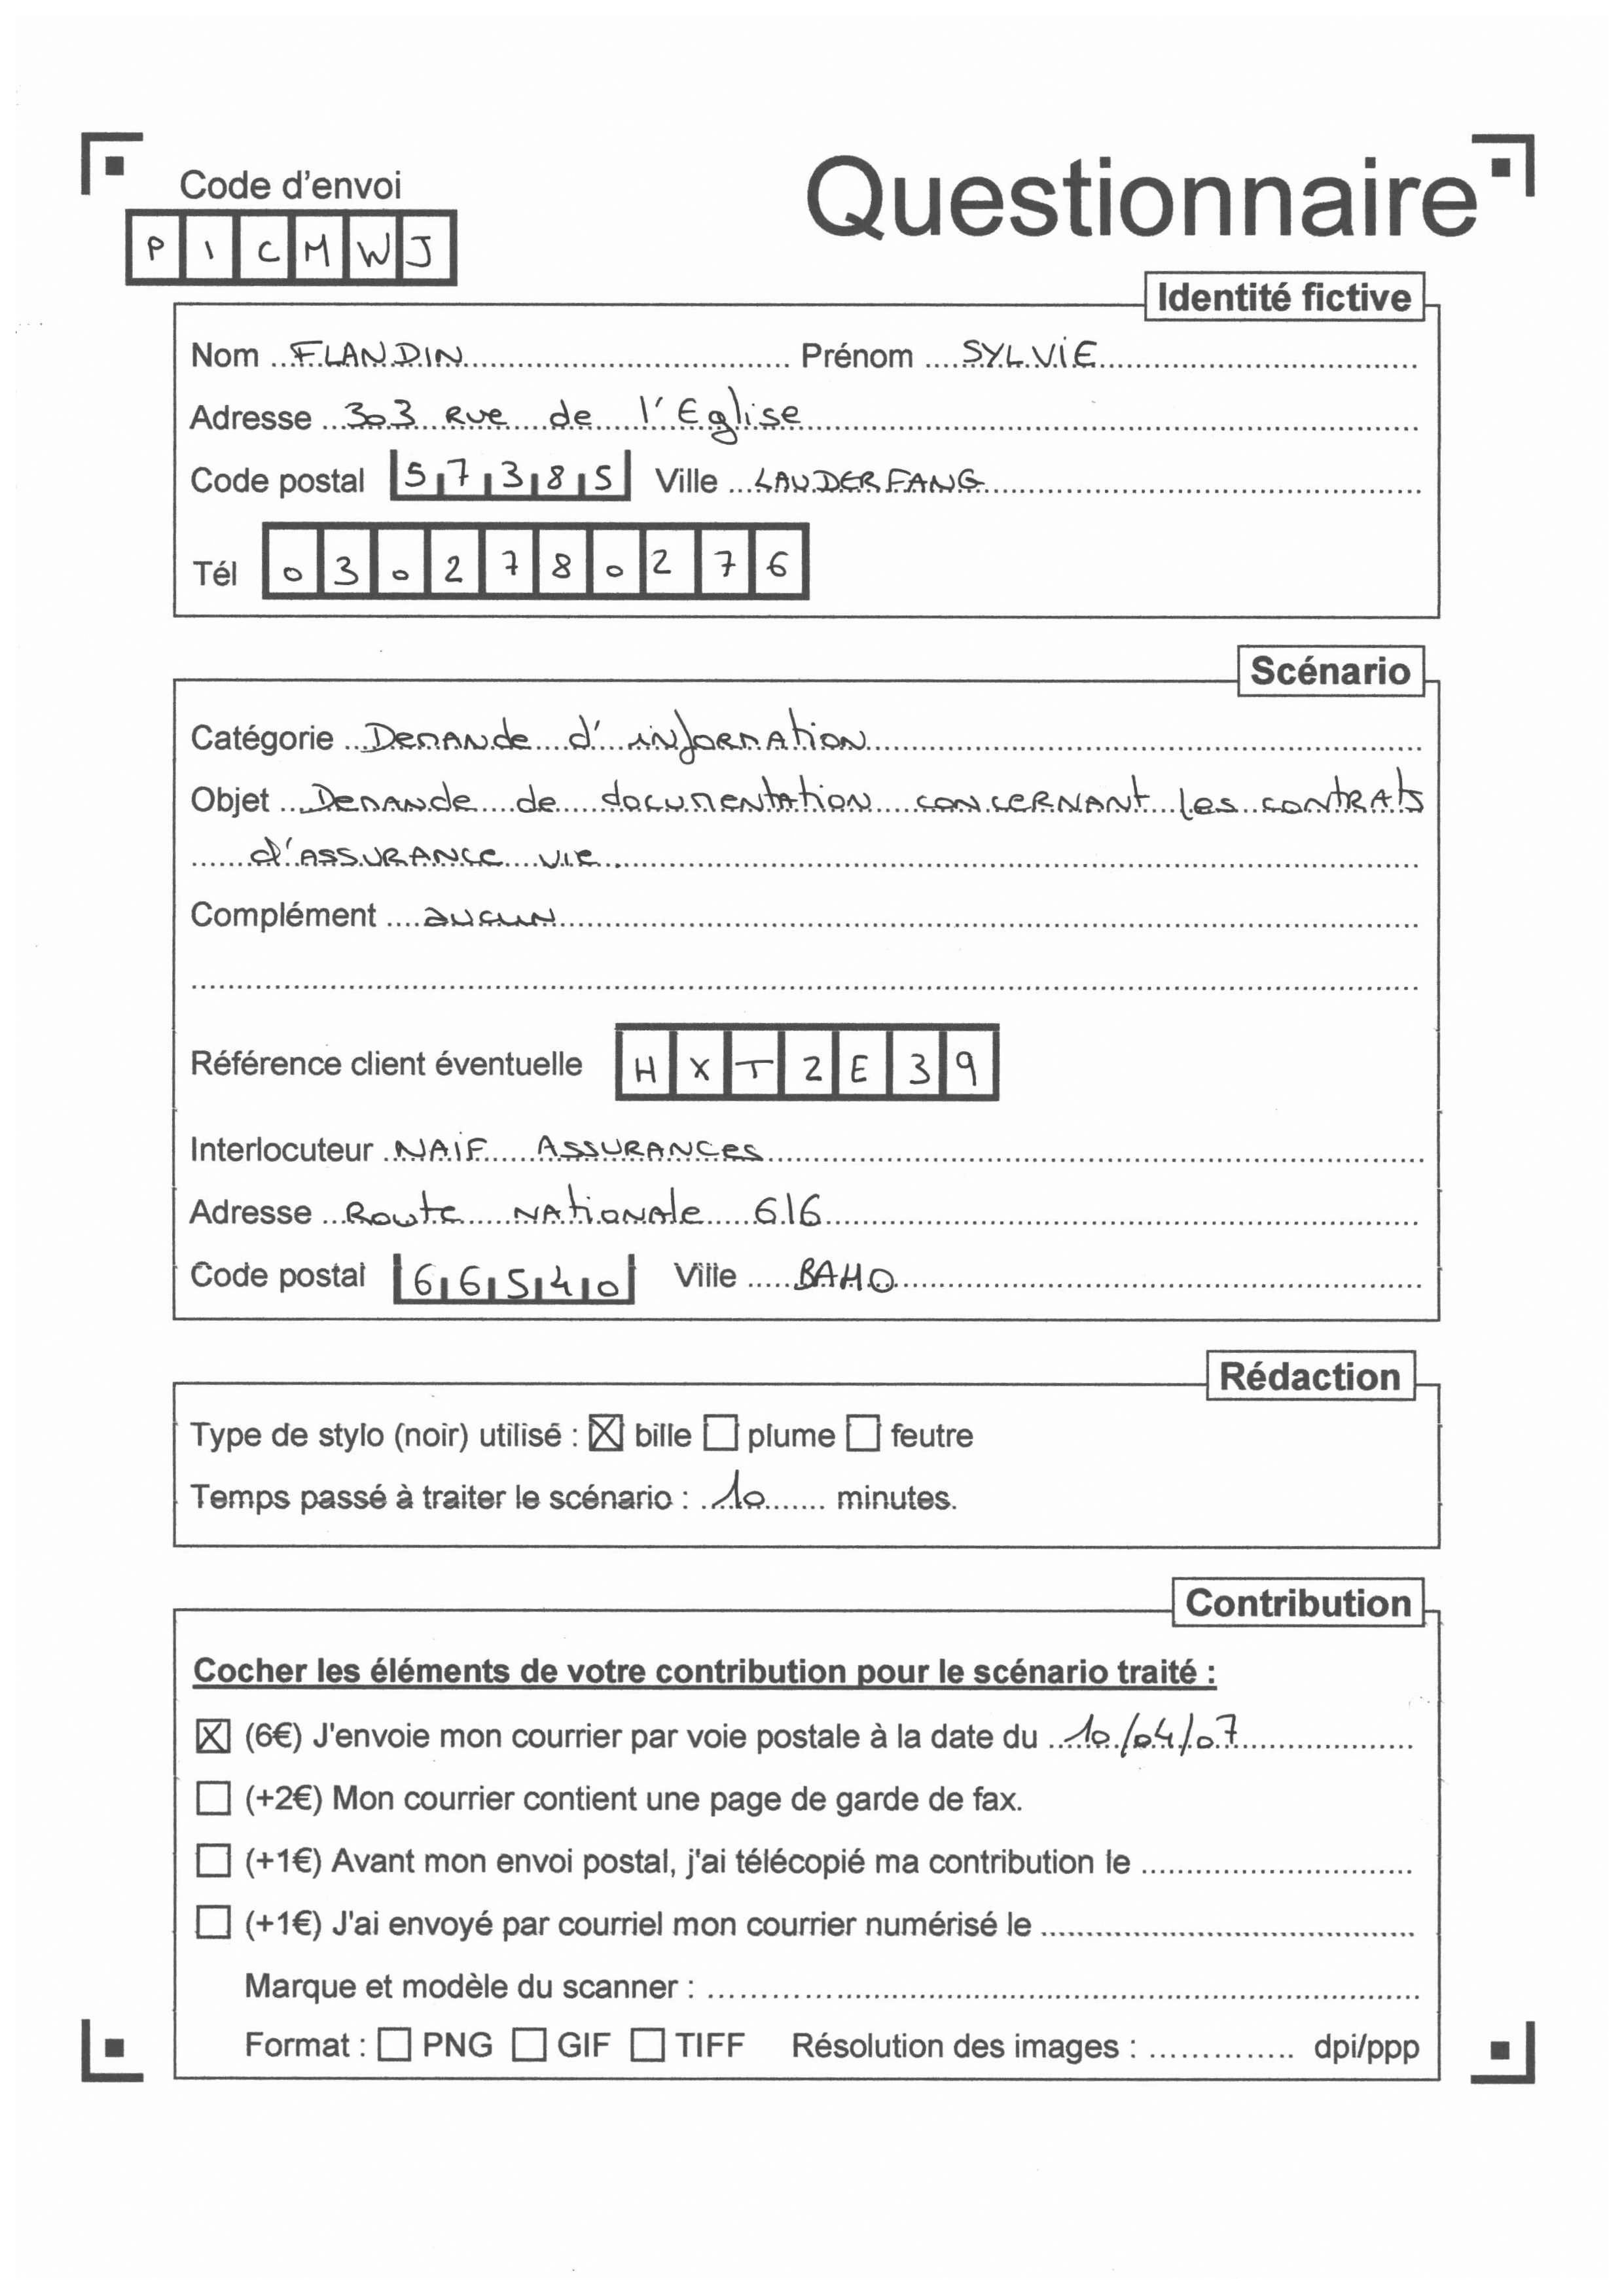 Code d'envoi
Questionnaire
P I C M W J
Identité fictive
Nom FLANDIN Prénom SYLVIE
Adresse 303 Rue de l'Eglise
Code postal 57385 Ville LAUDERFANG
Tél 0302780276
Scénario
Catégorie Demande d'information
Objet Demande de documentation concernant les contrats
d'assurance vie.
Complément aucun
Référence client éventuelle H X T 2 E 3 9
Interlocuteur NAIF ASSURANCES
Adresse Route Nationale 616
Code postal 66540 Ville BAHO
Rédaction
Type de stylo (noir) utilisé : ☒ bille ☐ plume ☐ feutre
Temps passé à traiter le scénario : 10 minutes.
Contribution
Cocher les éléments de votre contribution pour le scénario traité :
☒ (6€) J'envoie mon courrier par voie postale à la date du 10/04/07
☐ (+2€) Mon courrier contient une page de garde de fax.
☐ (+1€) Avant mon envoi postal, j'ai télécopié ma contribution le
☐ (+1€) J'ai envoyé par courriel mon courrier numérisé le
Marque et modèle du scanner :
Format : ☐ PNG ☐ GIF ☐ TIFF Résolution des images : dpi/ppp